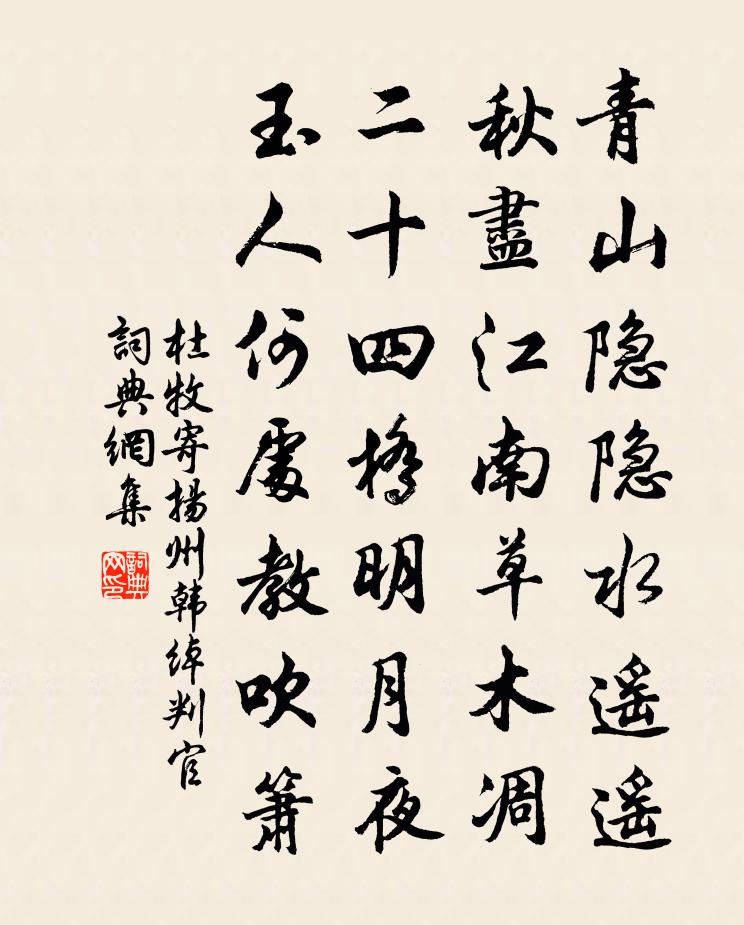 青山隐隐水遥遥
秋盡江南草木凋
二十四橋明月夜
玉人何處教吹簫
杜牧寄揚州韩绰判官
詞典網集
詞典网印